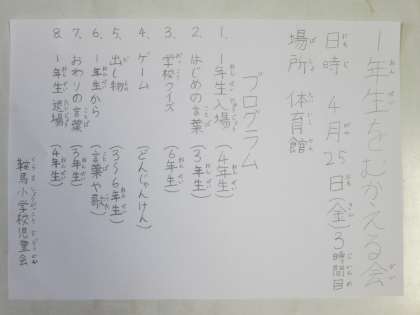 1年生をむかえる会
日時 4月25日(金)3時間目
場所 体育館
プログラム
1. 1年生入場 (4年生)
2. はじめの言葉 (3年生)
3. 学校クイズ (6年生)
4. ゲーム (どんじゃんけん)
5. 出し物 (3~6年生)
6. 1年生から (言葉や歌)
7. おわりの言葉 (3年生)
8. 1年生退場 (4年生)
鞍馬小学校児童会